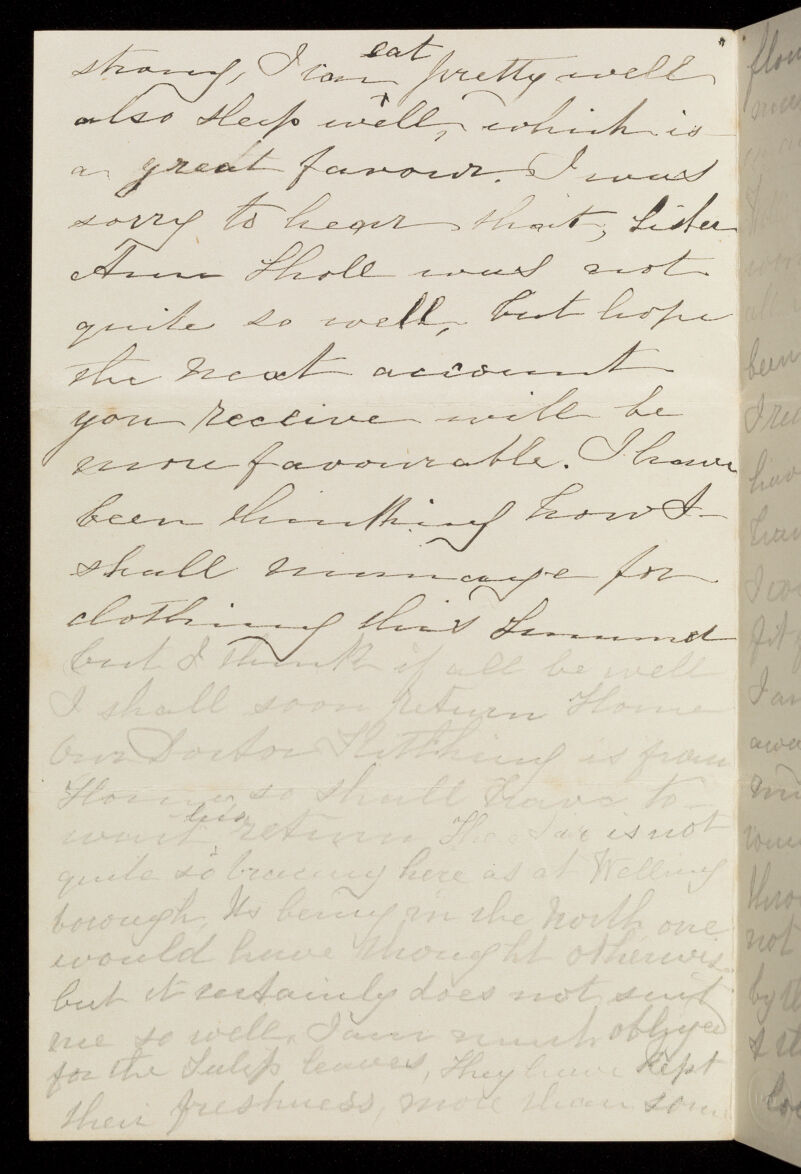 strong, I can eat pretty well
also sleep well, which is
a great favour. I was
sorry to hear that, Sister
Ann Sholl was not
quite so well, but hope
the next account
you receive will be
more favourable. I have
been thinking how I
shall manage for
clothing this
but I think if all be well
I shall soon return Home
Our Doctor is from
Home, so shall have to
wait his return The Air is not
quite so bracing here as at Welling
borough, Its being in the North one
would have thought otherwise
but it certainly does not suit
me so well, I am much obliged
for the Tulip leaves, They have kept
their freshness, more than some